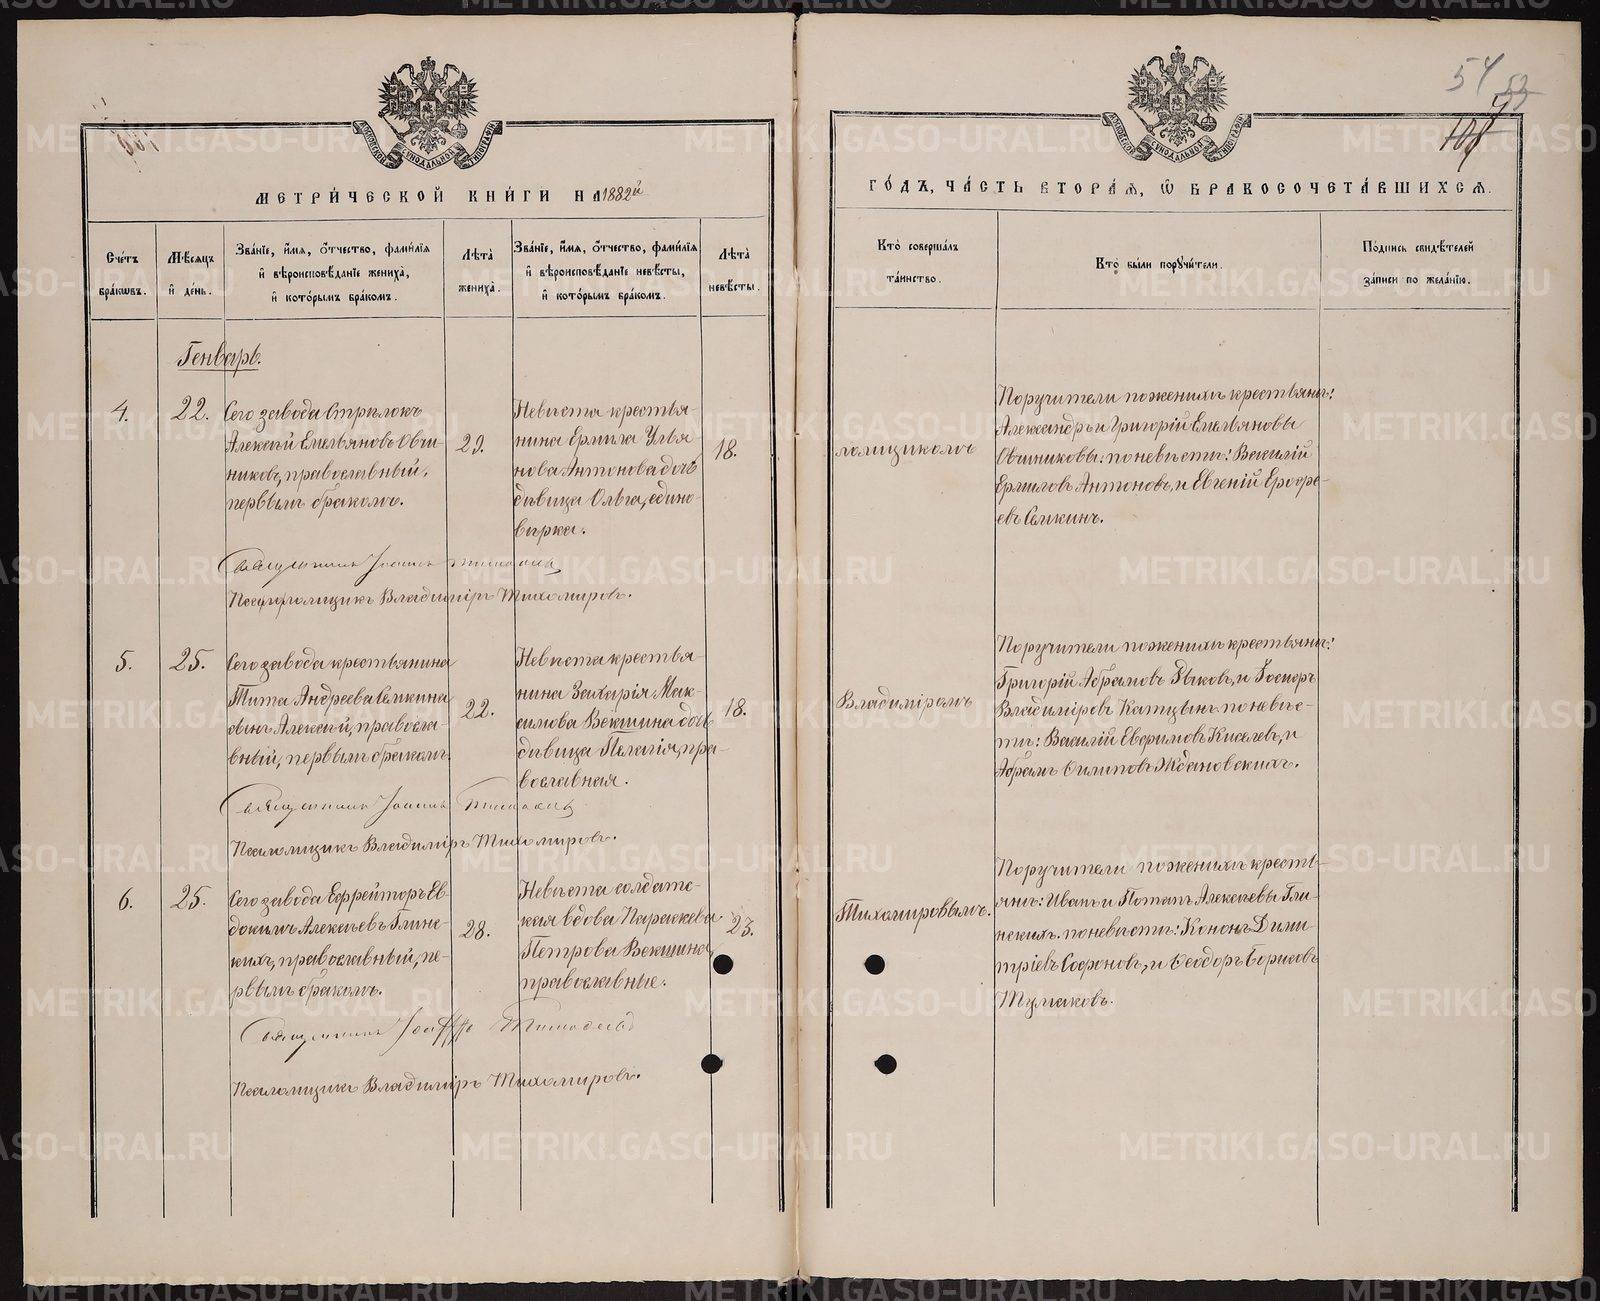 МЕТРИ́ЧЕСКОЙ КНИ́ГИ НА 1882й
Сче́тъ бра́кѡвъ.
Мѣ́сяцъ и҆ де́нь.
Зва́нїе, и҆́мя, ѻ҆́тчество, фами́лїя
и҆ вѣроисповѣ́данїе жениха̀,
и҆ кото́рымъ бра́комъ.
Лѣ́та жениха̀.
Зва́нїе, и҆́мя, ѻ҆́тчество, фами́лїя
и҆ вѣроисповѣ́данїе невѣ́сты,
и҆ кото́рымъ бра́комъ.
Лѣ́та невѣ́сты.
Генварь.
4.
22.
Сего завода Стрѣлокъ
Алексѣй Емельяновъ Овчи
никовъ, православный,
первымъ бракомъ.
23.
Невѣста крестья-
нина Ермила Улья
нова Антонова дочь
дѣвица Ольга, едино-
вѣрка.
18.
Священникъ Іоаннъ
Псаломщикъ Владиміръ Тихомировъ.
5.
25.
Сего завода крестьянина
Тита Андреева Семкина
сынъ Алексѣй, правосла
вный, первымъ бракомъ.
22.
Невѣста крестья-
нина Захарія Мак-
симова Векшина дочь
дѣвица Пелагія, пра-
вославная.
18.
Священникъ Іоаннъ
Псаломщикъ Владиміръ Тихомировъ.
6.
25.
Сего завода Ефрейторъ Ев-
докимъ Алексѣевъ Глинс-
кихъ, православный, пе-
рвымъ бракомъ.
28.
Невѣста солдатс-
кая вдова Параскева
Петрова Векшина
православные.
23.
Священникъ
Псаломщикъ Владиміръ Тихомировъ.
54 53
ГО́ДЪ, ЧА́СТЬ ВТОРА́Я, Ѡ҆ БРАКОСОЧЕТА́ВШИХСЯ.
Кто̀ соверша́лъ
та́инство.
Кто̀ бы́ли поручи́тели.
По́дпись свидѣ́телей
за́писи по жела́нїю.
ломщикомъ
Поручители по женихѣ крестьяне:
Александръ и Григорій Емельяновы
Овчинниковы: по невѣстѣ: Василій
Ермиловъ Антоновъ, и Евгеній Ерофе-
евъ Семкинъ.
Владиміромъ
Поручители по женихѣ крестьяне:
Григорій Абрамовъ Быковъ, и Егоръ
Владиміровъ Катцынъ по невѣс-
тѣ: Василій Евфимовъ Киселевъ, и
Абрамъ Филиповъ Ждановскихъ.
Тихомировымъ.
Поручители по женихѣ кресть-
яне: Иванъ и Потапъ Алексѣевы Гли-
нскихъ. по невѣстѣ: Кононъ Дими
тріевъ Софоновъ, и Ѳеодоръ Борисовъ
Тумаковъ.
METRIKI.GASO-URAL.RU